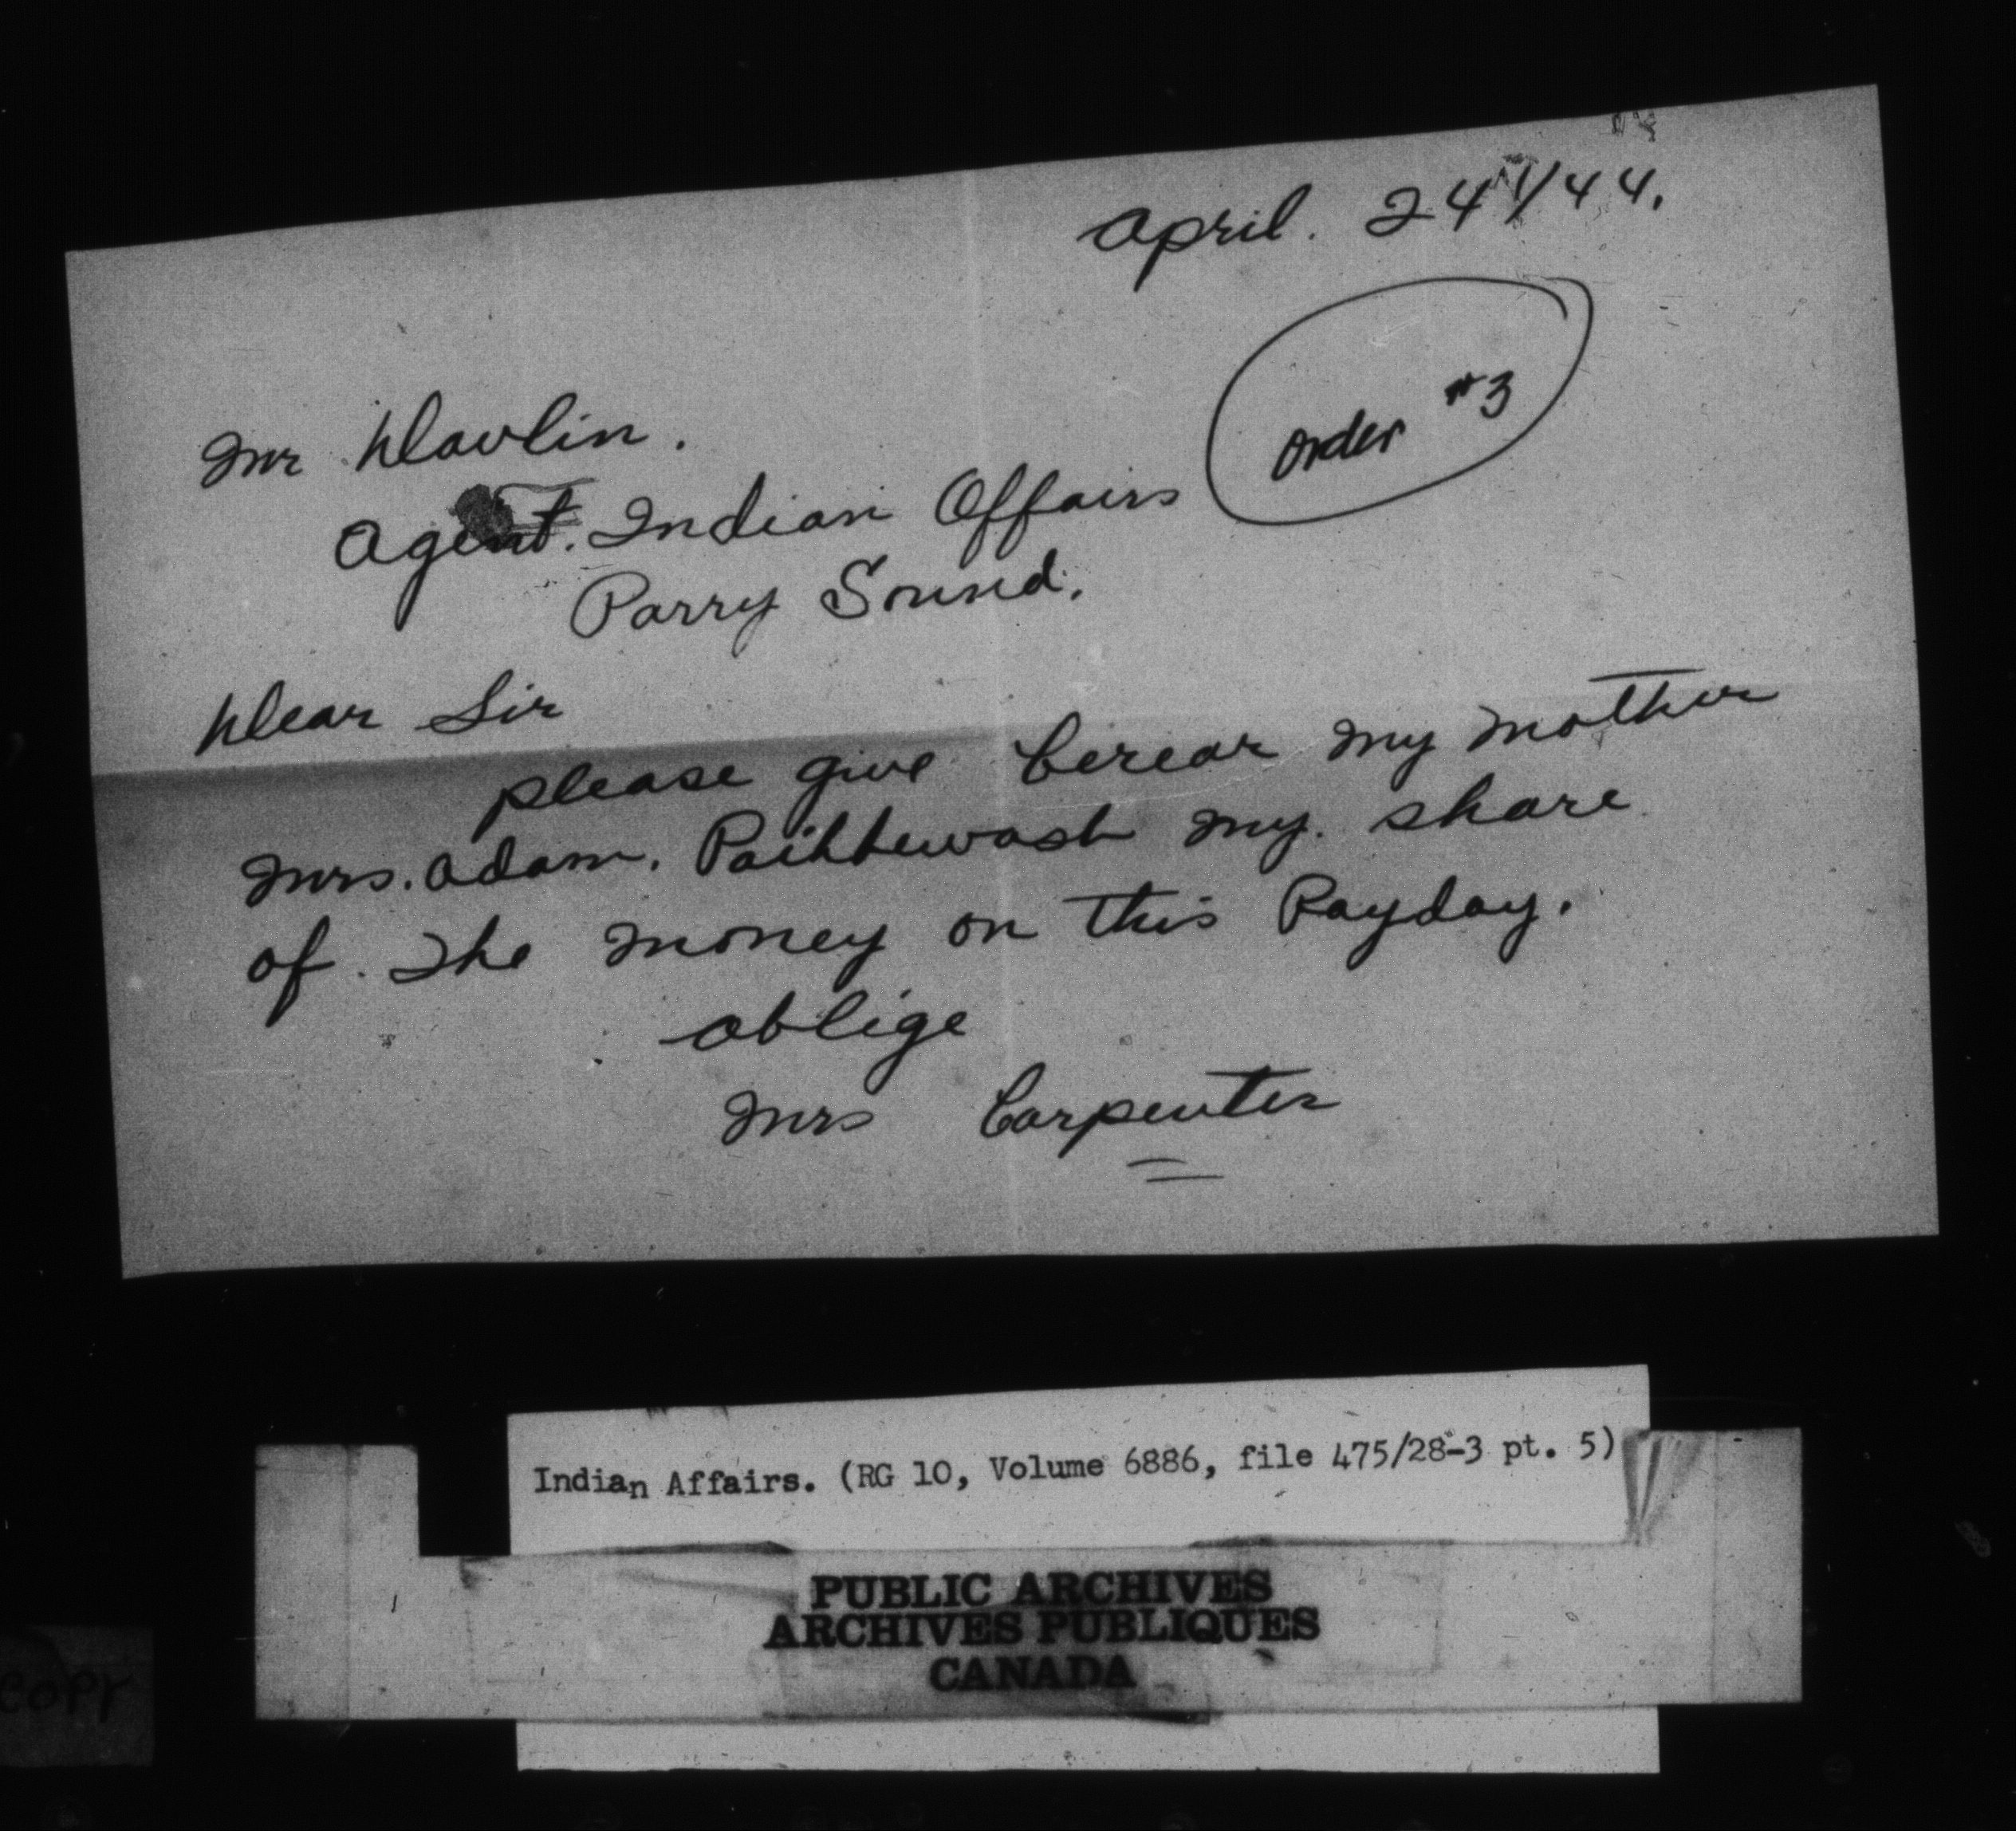 April. 24th/44.
Order #3
Mr Davlin.
Agent. Indian Affairs
Parry Sound.
Dear Sir
please give berear my mother
Mrs. Adam. Paihbewash my. share
of. The money on this Payday.
oblige
Mrs Carpenter
Indian Affairs. (RG 10, Volume 6886, file 475/28-3 pt. 5)
PUBLIC ARCHIVES
ARCHIVES PUBLIQUES
CANADA
copy